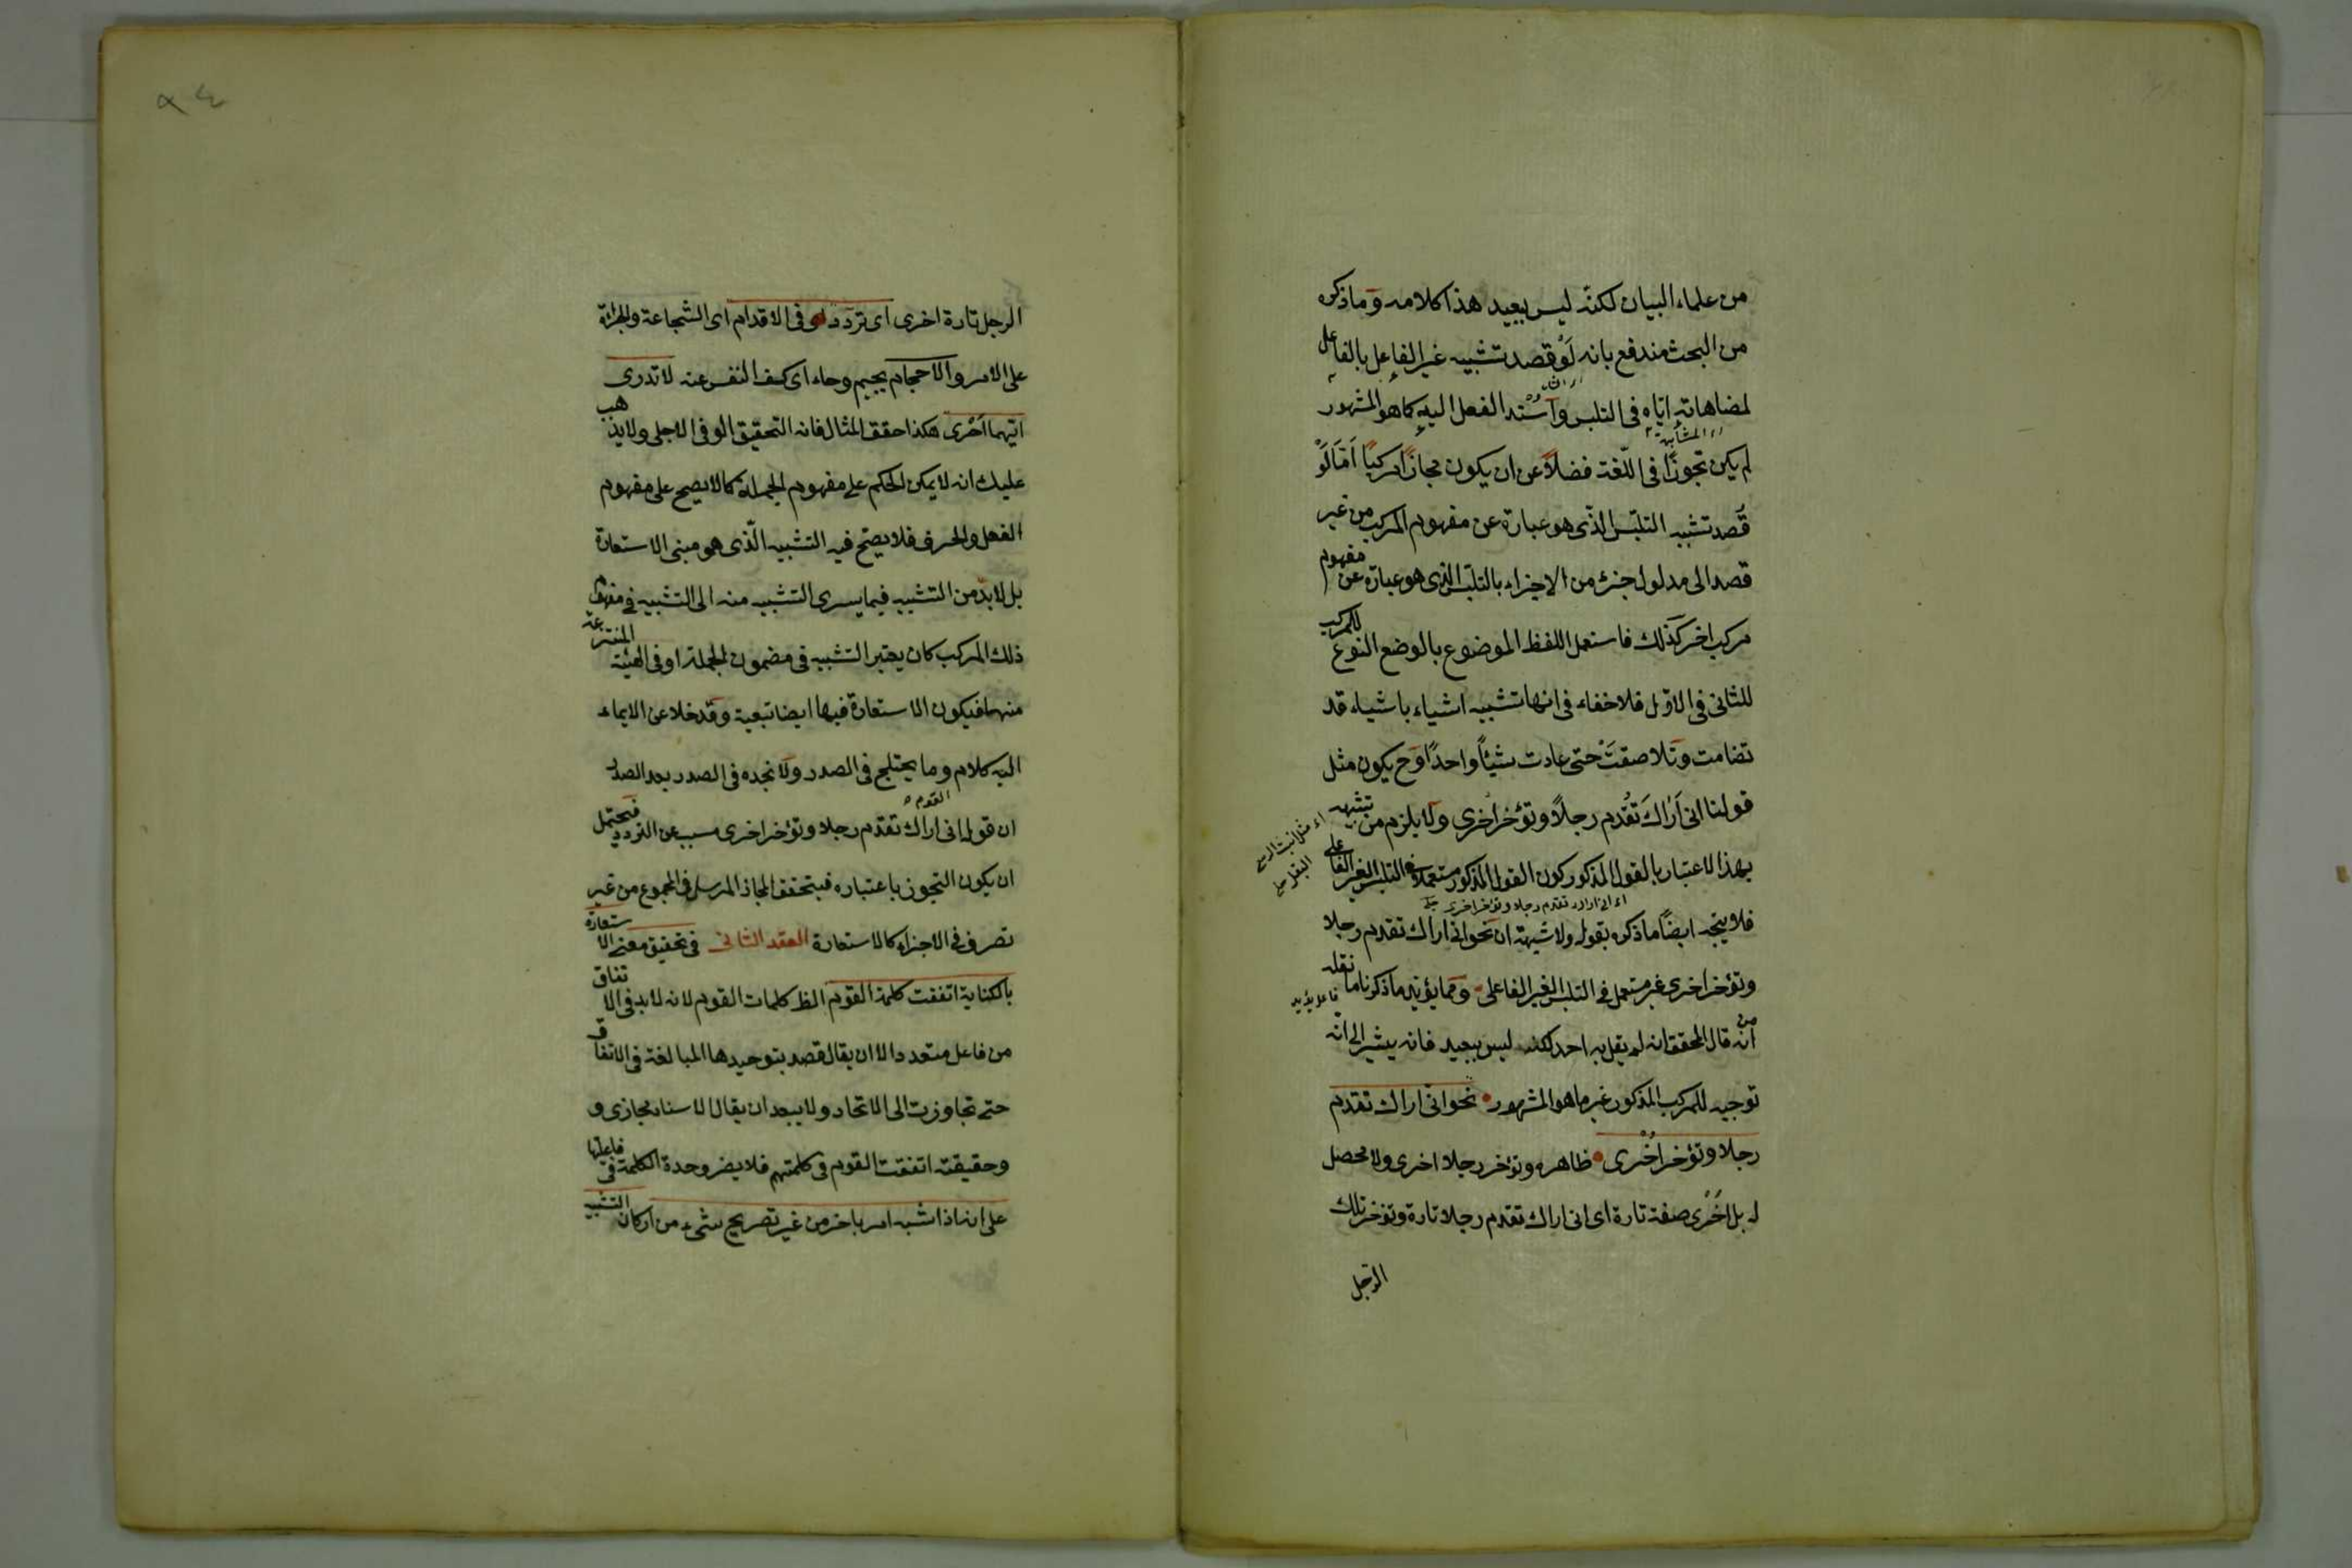 من علماء البيان لكنّه ليس ببعيد هذا كلامه وما ذكره
من البحث مندفع بانه لَوْ قصد تشبيه غير الفاعل بالفاعل
لمضاهاته ايّاه فى التلبس وَاُسْند الفعل اليه كما هو المشهور
لم يكن تجوزًا فى اللّغة فضلاً عن ان يكون مجازًا مركبًا اَمّا لَوْ
قُصد تشبيه التلبّس الذّى هو عبارة عن مفهوم المركب من غير
قصد الى مدلول جزء من الاجزاء بالتلبّس الذى هو عبارة عن مفهوم
مركب اخر كذلك فاستعمل اللفظ الموضوع بالوضع النوعى للمركب
للثانى فى الاوّل فلا خفاء فى انها تشبيه اشياء باشياء قد
تضامت وَتلاصقَتْ حتى عادت شيئاً واحدًا وَح يكون مثل
قولنا انى اَرَاكَ تَقُدم رجلاً وتؤخر اُخرى ولا يلزم من تشبيهه
بهذا الاعتبار بالقول المذكور كون القول المذكور مستعملا فى التلبس الغير الفاعلى
اى انى اراك تقدم رجلا وتؤخر اخرى
فلا يتجه ايضًا ما ذكره بقوله ولا شبهة ان نحو انى اراك تقدم رجلا
وتؤخر اخرى غير مستعمل فى التلبس الغير الفاعلى وَمما يؤيد ما ذكرنا ما نقله
من انه قال المحقق انه لم يقل به احد لكنه ليس ببعيد فانه يشير الى انّه
توجيه للمركب المذكور غير ما هو المشهور نحو انّى اراك تقدم
رجلا وتؤخر اُخْرى ظاهره وتؤخر رجلا اخرى ولا محصل
له بل اُخْرى صفة تارة اى انى اراك تقدم رجلا تارة وتؤخر تلك
الرّجل
الرجل تارة اخرى اى تردد فى الاقدام اى الشجاعة والجرائة
على الامر والاحجام بجيم وحاء اى كف النفس عنه لا تدرى
ايّهما اَحْرى هكذا حقق المثال فانه التحقيق الوفى الاجلى ولا يذهب
عليك انه لا يمكن الحكم على مفهوم الجملة كما لا يصح على مفهوم
الفعل والحرف فلا يصحّ فيه التشبيه الّذى هو مبنى الاستعارة
بل لا بدّ من التشبيه فيما يسرى التشبيه منه الى التشبيه فى مفهوم
ذلك المركب كان يعتبر التشبيه فى مضمون الجملة او فى الهيئة المنتزعة
منها فيكون الاستعارة فيها ايضا تبعية وقد خلا عن الايماء
اليه كلام وما يختلج فى الصدر ولا نجده فى الصدر بعد الصدر
ان قول القوم انى اراك تقدم رجلا وتؤخر اخرى مسبب عن التردد فيحتمل
ان يكون التجوز باعتباره فيتحقق المجاز المرسل فى المجموع من غير
تصرف فى الاجزاء كالاستعارة العقد الثانى فى تحقيق معنى الاستعارة
بالكناية اتفقت كلمة القوم الظ كلمات القوم لانه لا بد فى الاتفاق
من فاعل متعدد الا ان يقال قصد بتوحيدها المبالغة فى الاتفاق
حتى تجاوزت الى الاتحاد ولا يبعد ان يقال الاسناد مجازى و
وحقيقته اتفقت القوم فى كلمتهم فلا يضر وحدة الكلمة فى فاعلها
على انه اذا شبه امر باخر من غير تصريح بشىء من اركان التشبيه